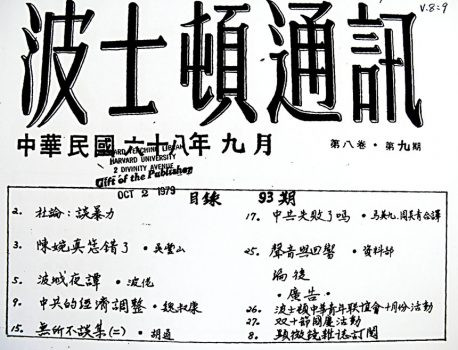 V.8:9
波士頓通訊
中華民國六十八年九月 第八卷・第九期
HARVARD-YENCHING LIBRARY
HARVARD UNIVERSITY
2 DIVINITY AVENUE
Gift of the Publisher
OCT 2 1979
目錄 93期
2. 社論：談暴力
3. 陳婉真怎錯了・吳豐山
5. 波城夜譚・波佬
9. 中共的經濟調整・魏叔康
15. 無所不談集(二)・胡適
17. 中共失敗了嗎・馬英九、周美青合譯
25. 聲音與回響・資料部
編後
・廣告・
26. 波士頓中華青年聯誼會十月份活動
27. 双十節國慶活動
8. 顯微鏡雜誌訂閱